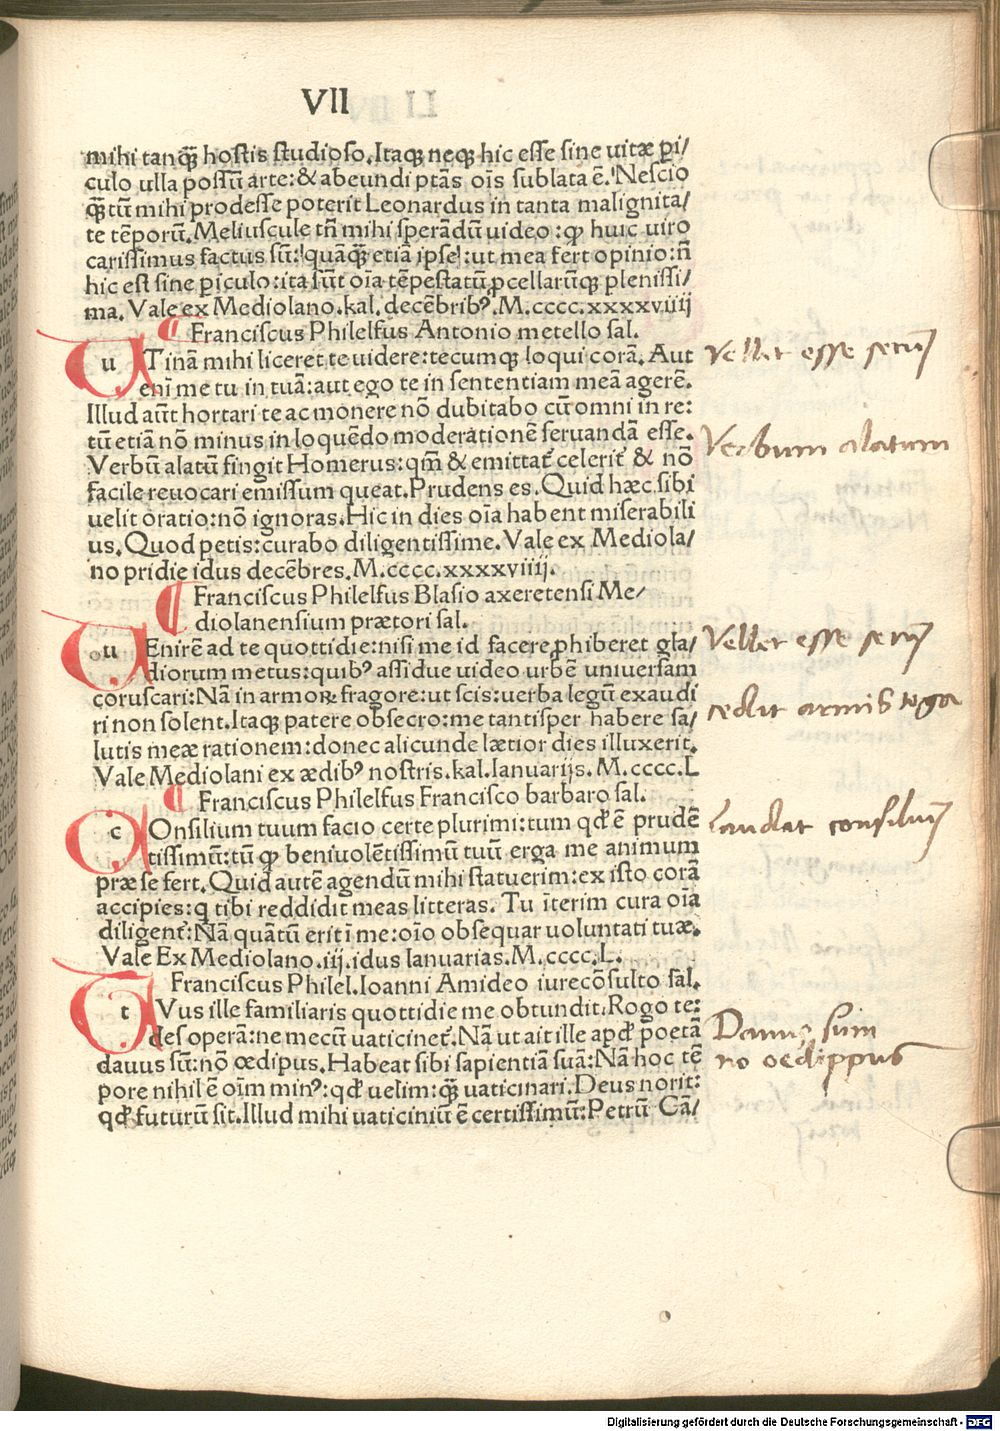 VII
mihi tanq̃ hostis studioso. Itaq; neq; hic esse sine uitæ ꝑi/
culo ulla possũ arte: & abeundi ptãs oĩs sublata ẽ. Nescio
q̃tũ mihi prodesse poterit Leonardus in tanta malignita/
te tẽporũ. Meliuscule tñ mihi sperãdũ uideo: ꝙ huic uiro
carissimus factus sũ: quãq̃ etiã ipse: ut mea fert opinio: ñ
hic est sine ꝑiculo: ita sũt oĩa tẽpestatũ ꝓcellarũq; plenissi/
ma. Vale ex Mediolano. kal. decẽbribꝰ. M.cccc.xxxxviiij
¶ Franciscus Philelfus Antonio metello sal.
u Tinã mihi liceret te uidere: tecumq; loqui corã. Aut Vellet esse secum
enĩ me tu in tuã: aut ego te in sententiam meã agerẽ.
Illud aũt hortari te ac monere nõ dubitabo cũ omni in re:
tũ etiã nõ minus in loquẽdo moderationẽ seruandã esse. Verbum alatum
Verbũ alatũ fingit Homerus: qm̃ & emittat̃ celerit̃ & nõ
facile reuocari emissum queat. Prudens es. Quid hæc sibi
uelit oratio: nõ ignoras. Hic in dies oĩa habent miserabili
us. Quod petis: curabo diligentissime. Vale ex Mediola/
no pridie idus decẽbres. M.cccc.xxxxviiij.
¶ Franciscus Philelfus Blasio axeretensi Me/
diolanensium prætori sal.
u Enirẽ ad te quottidie: nisi me id facere ꝓhiberet gla/ Vellet esse secum
diorum metus: quibꝰ assidue uideo urbẽ uniuersam
coruscari: Nã in armoꝝ fragore: ut scis: uerba legũ exaudi cedit armis toga
ri non solent. Itaq; patere obsecro: me tantisper habere sa/
lutis meæ rationem: donec alicunde lætior dies illuxerit.
Vale Mediolani ex ædibꝰ nostris. kal. Ianuarijs. M.cccc.L
¶ Franciscus Philelfus Francisco barbaro sal.
c Onsilium tuum facio certe plurimi: tum qđ ẽ prudẽ Laudat consiliũ
tissimũ: tũ ꝙ beniuolẽtissimũ tuũ erga me animum
præ se fert. Quid autẽ agendũ mihi statuerim: ex isto corã
accipies: q tibi reddidit meas litteras. Tu ĩterim cura oĩa
diligent̃: Nã quãtũ erit ĩ me: oĩo obsequar uoluntati tuæ.
Vale Ex Mediolano. iij. idus Ianuarias. M.cccc.L.
Franciscus Philel. Ioanni Amideo iurecõsulto sal.
t Vus ille familiaris quottidie me obtundit. Rogo te: Dauus sum
des operã: ne mecũ uaticinet̃. Nã ut ait ille apđ poetã
dauus sũ: nõ œdipus. Habeat sibi sapientiã suã: Nã hoc tẽ no oedippus
pore nihil ẽ oĩm minꝰ: qđ uelim: q̃ uaticinari. Deus norit:
qđ futurũ sit. Illud mihi uaticiniũ ẽ certissimũ: Petrũ Cã/
Digitalisierung gefördert durch die Deutsche Forschungsgemeinschaft - DFG